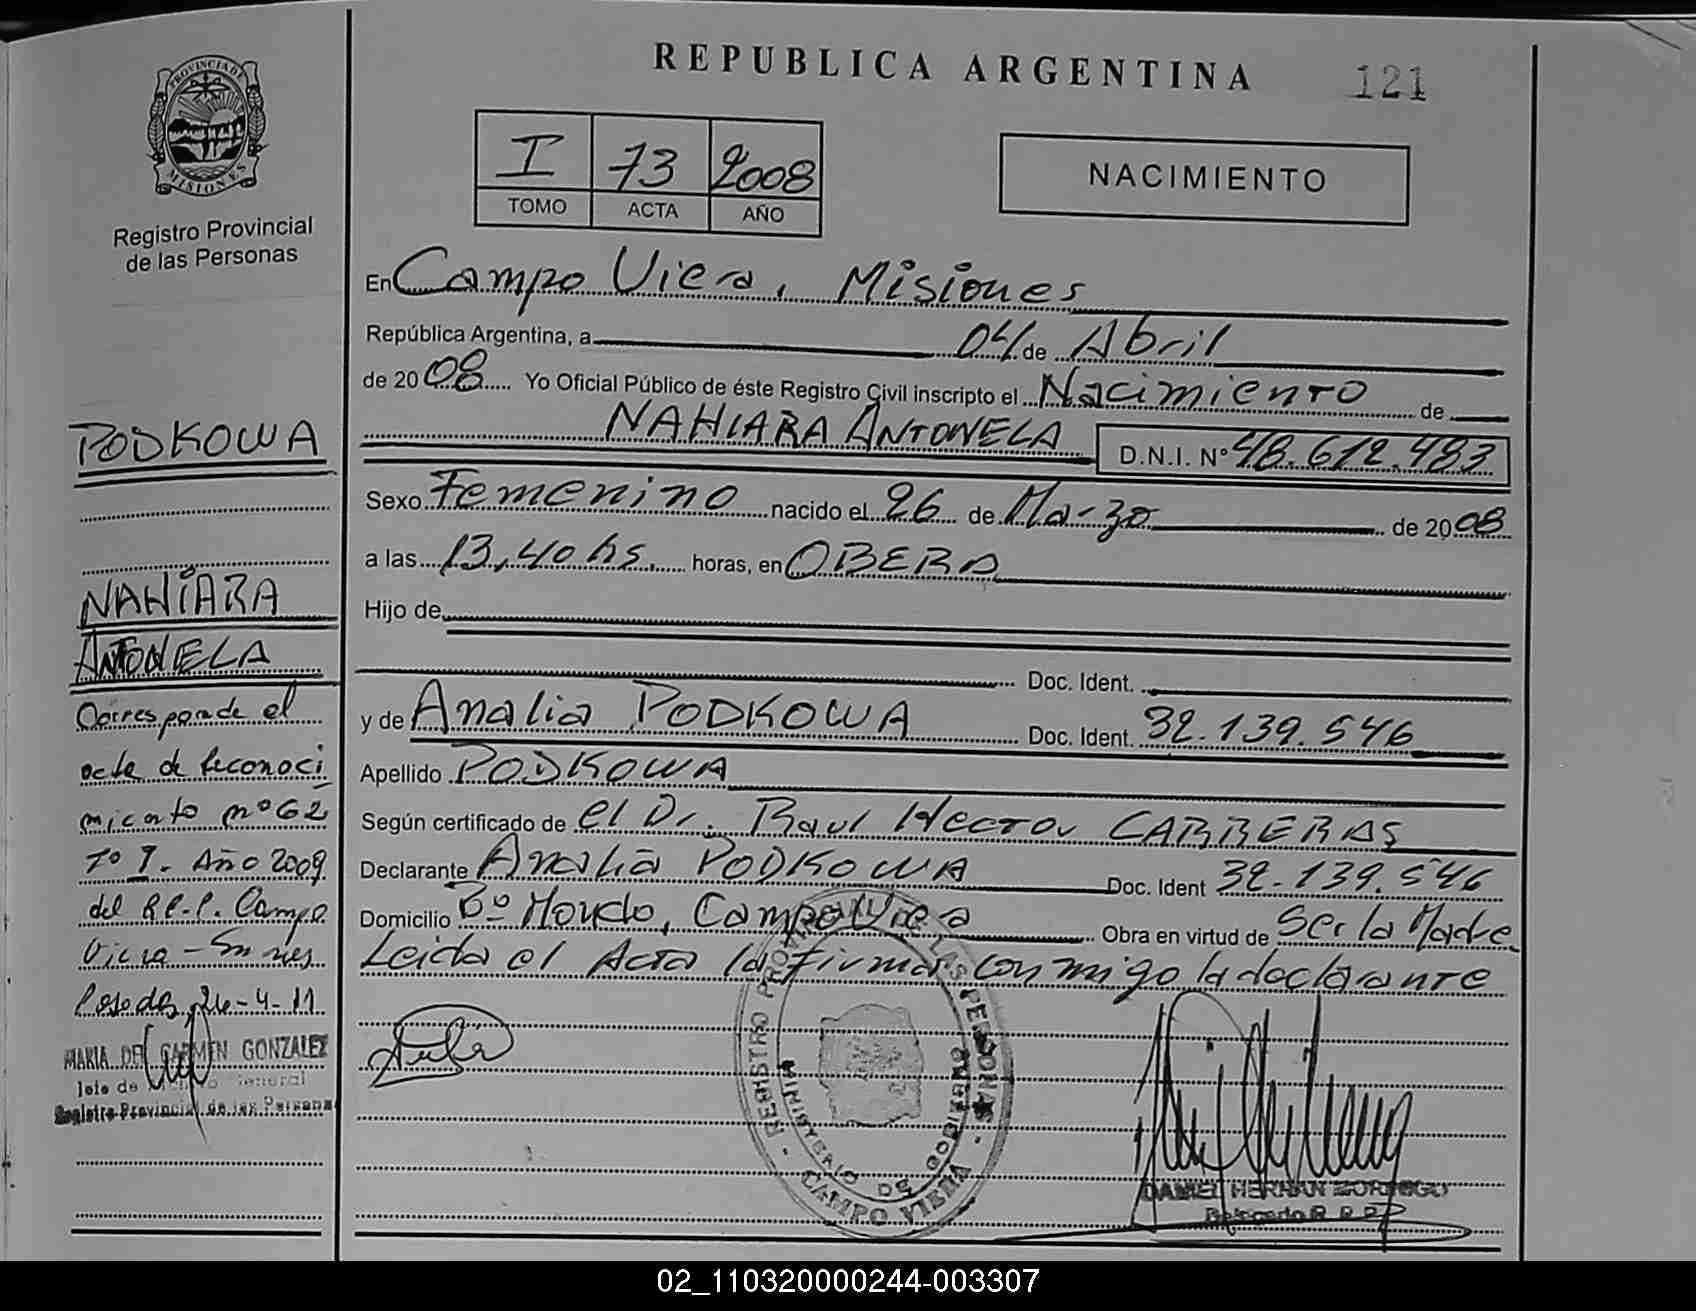 REPUBLICA ARGENTINA
121
PROVINCIA DE
MISIONES
Registro Provincial
de las Personas
I 73 2008
TOMO ACTA AÑO
NACIMIENTO
En Campo Viera, Misiones
República Argentina, a 04 de Abril
de 2008 Yo Oficial Público de éste Registro Civil inscripto el Nacimiento de
NAHIARA ANTONELA D.N.I. N° 48.612.483
Sexo Femenino nacido el 26 de Marzo de 2008
a las 13,40 hs. horas, en OBERA
Hijo de
Doc. Ident.
y de Analia PODKOWA Doc. Ident. 32.139.546
Apellido PODKOWA
Según certificado de el Dr. Raul Hector CARRERAS
Declarante Analia PODKOWA Doc. Ident 32.139.546
Domicilio Bº Mondo, Campo Viera Obra en virtud de Ser la Madre
Leida el Acta la firma conmigo la declarante
PODKOWA
NAHIARA
ANTONELA
Corresponde el
acta de reconoci
miento nº 62
Tº I. Año 2009
del R.P.P. Campo
Viera - Mnes
Posadas, 26-4-11
MARIA DEL CARMEN GONZALEZ
Jefe de General
Registro Provincial de las Personas
REGISTRO PROVINCIAL DE LAS PERSONAS
MINISTERIO DE GOBIERNO
CAMPO VIERA
DANIEL HERNAN
Delegado R.P.P.
02_110320000244-003307